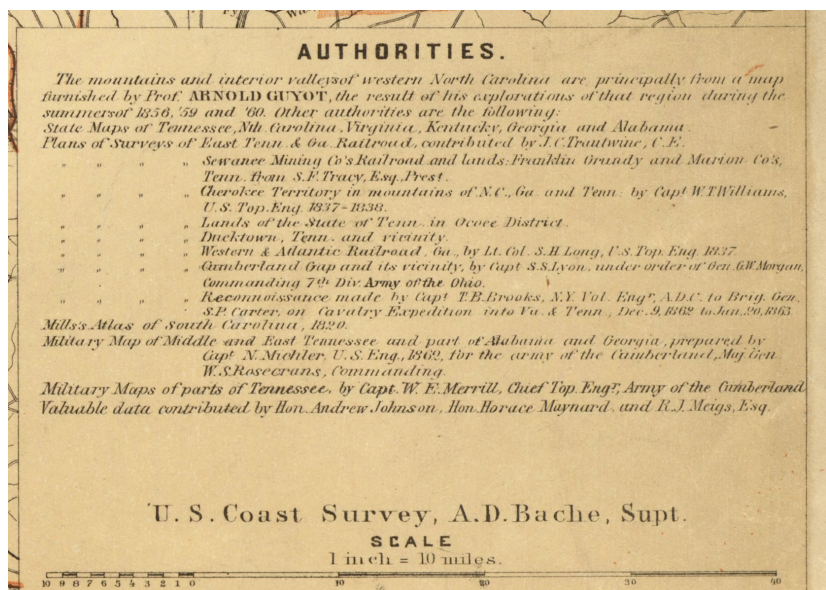 AUTHORITIES.
The mountains and interior valleys of western North Carolina are principally from a map
furnished by Prof. ARNOLD GUYOT, the result of his explorations of that region during the
summers of 1856, '59 and '60. Other authorities are the following:
State Maps of Tennessee, Nth. Carolina, Virginia, Kentucky, Georgia and Alabama.
Plans of Surveys of East Tenn. & Ga. Railroad, contributed by J.C. Trautwine, C.E.
" " " " Sewanee Mining Co's Railroad and lands: Franklin Grundy and Marion Co's,
Tenn. from S.F. Tracy, Esq., Prest.
" " " " Cherokee Territory in mountains of N.C., Ga. and Tenn: by Capt. W.T. Williams,
U.S. Top. Eng. 1837-1838.
" " " " Lands of the State of Tenn. in Ocoee District.
" " " " Ducktown, Tenn. and vicinity.
" " " " Western & Atlantic Railroad, Ga., by Lt. Col. S.H. Long, U.S. Top. Eng. 1837.
" " " " Cumberland Gap and its vicinity, by Capt. S.S. Lyon, under order of Gen. G.W. Morgan,
Commanding 7th Div. Army of the Ohio.
" " " " Reconnoissance made by Capt. T.B. Brooks, N.Y. Vol. Engr., A.D.C. to Brig. Gen.
S.P. Carter, on Cavalry Expedition into Va. & Tenn., Dec. 9, 1862 to Jan. 20, 1863.
Mills's Atlas of South Carolina, 1820.
Military Map of Middle and East Tennessee and part of Alabama and Georgia, prepared by
Capt. N. Michler, U.S. Eng., 1862, for the army of the Cumberland, Maj. Gen.
W.S. Rosecrans, Commanding.
Military Maps of parts of Tennessee, by Capt. W.E. Merrill, Chief Top. Engr., Army of the Cumberland
Valuable data contributed by Hon. Andrew Johnson, Hon. Horace Maynard, and R.J. Meigs, Esq.
U.S. Coast Survey, A.D. Bache, Supt.
SCALE
1 inch = 10 miles.
10 9 8 7 6 5 4 3 2 1 0 10 20 30 40